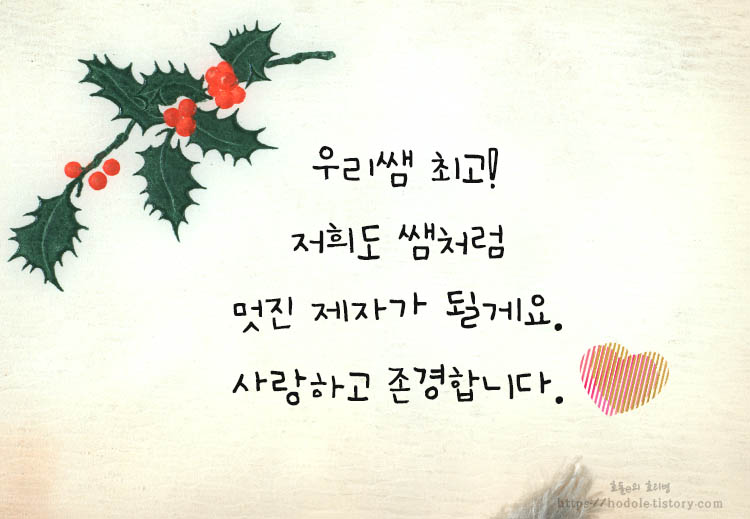 우리쌤 최고!
저희도 쌤처럼
멋진 제자가 될게요.
사랑하고 존경합니다.
https://hodole.tistory.com